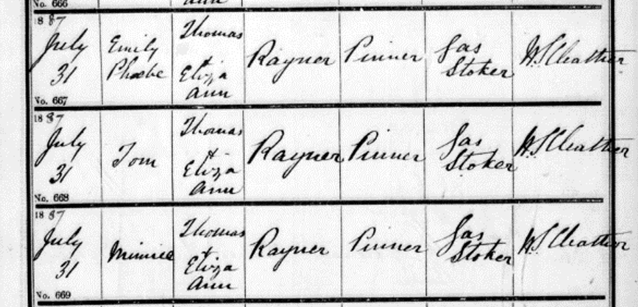 No. 666
Ann
1887
July
31
Emily
Phoebe
Thomas
+
Eliza
Ann
Rayner
Pinner
Gas
Stoker
No. 667
1887
July
31
Tom
Thomas
+
Eliza
Ann
Rayner
Pinner
Gas
Stoker
No. 668
1887
July
31
Minnie
Thomas
+
Eliza
Ann
Rayner
Pinner
Gas
Stoker
No. 669